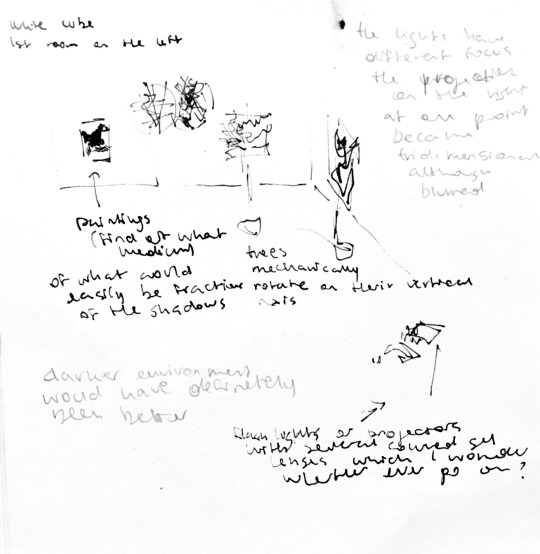 white cube
1st room on the left
the lights have
different focus
the projection
on the right
at one point
became
tridimensional
although
blurred
paintings
(find out what
medium)
of what would
easily be fraction
of the shadows
trees
mechanically
rotate on their vertical
axis
darker environment
would have definitely
been better
lights or projectors
with several coloured gel
lenses which I wonder
whether ever go on?